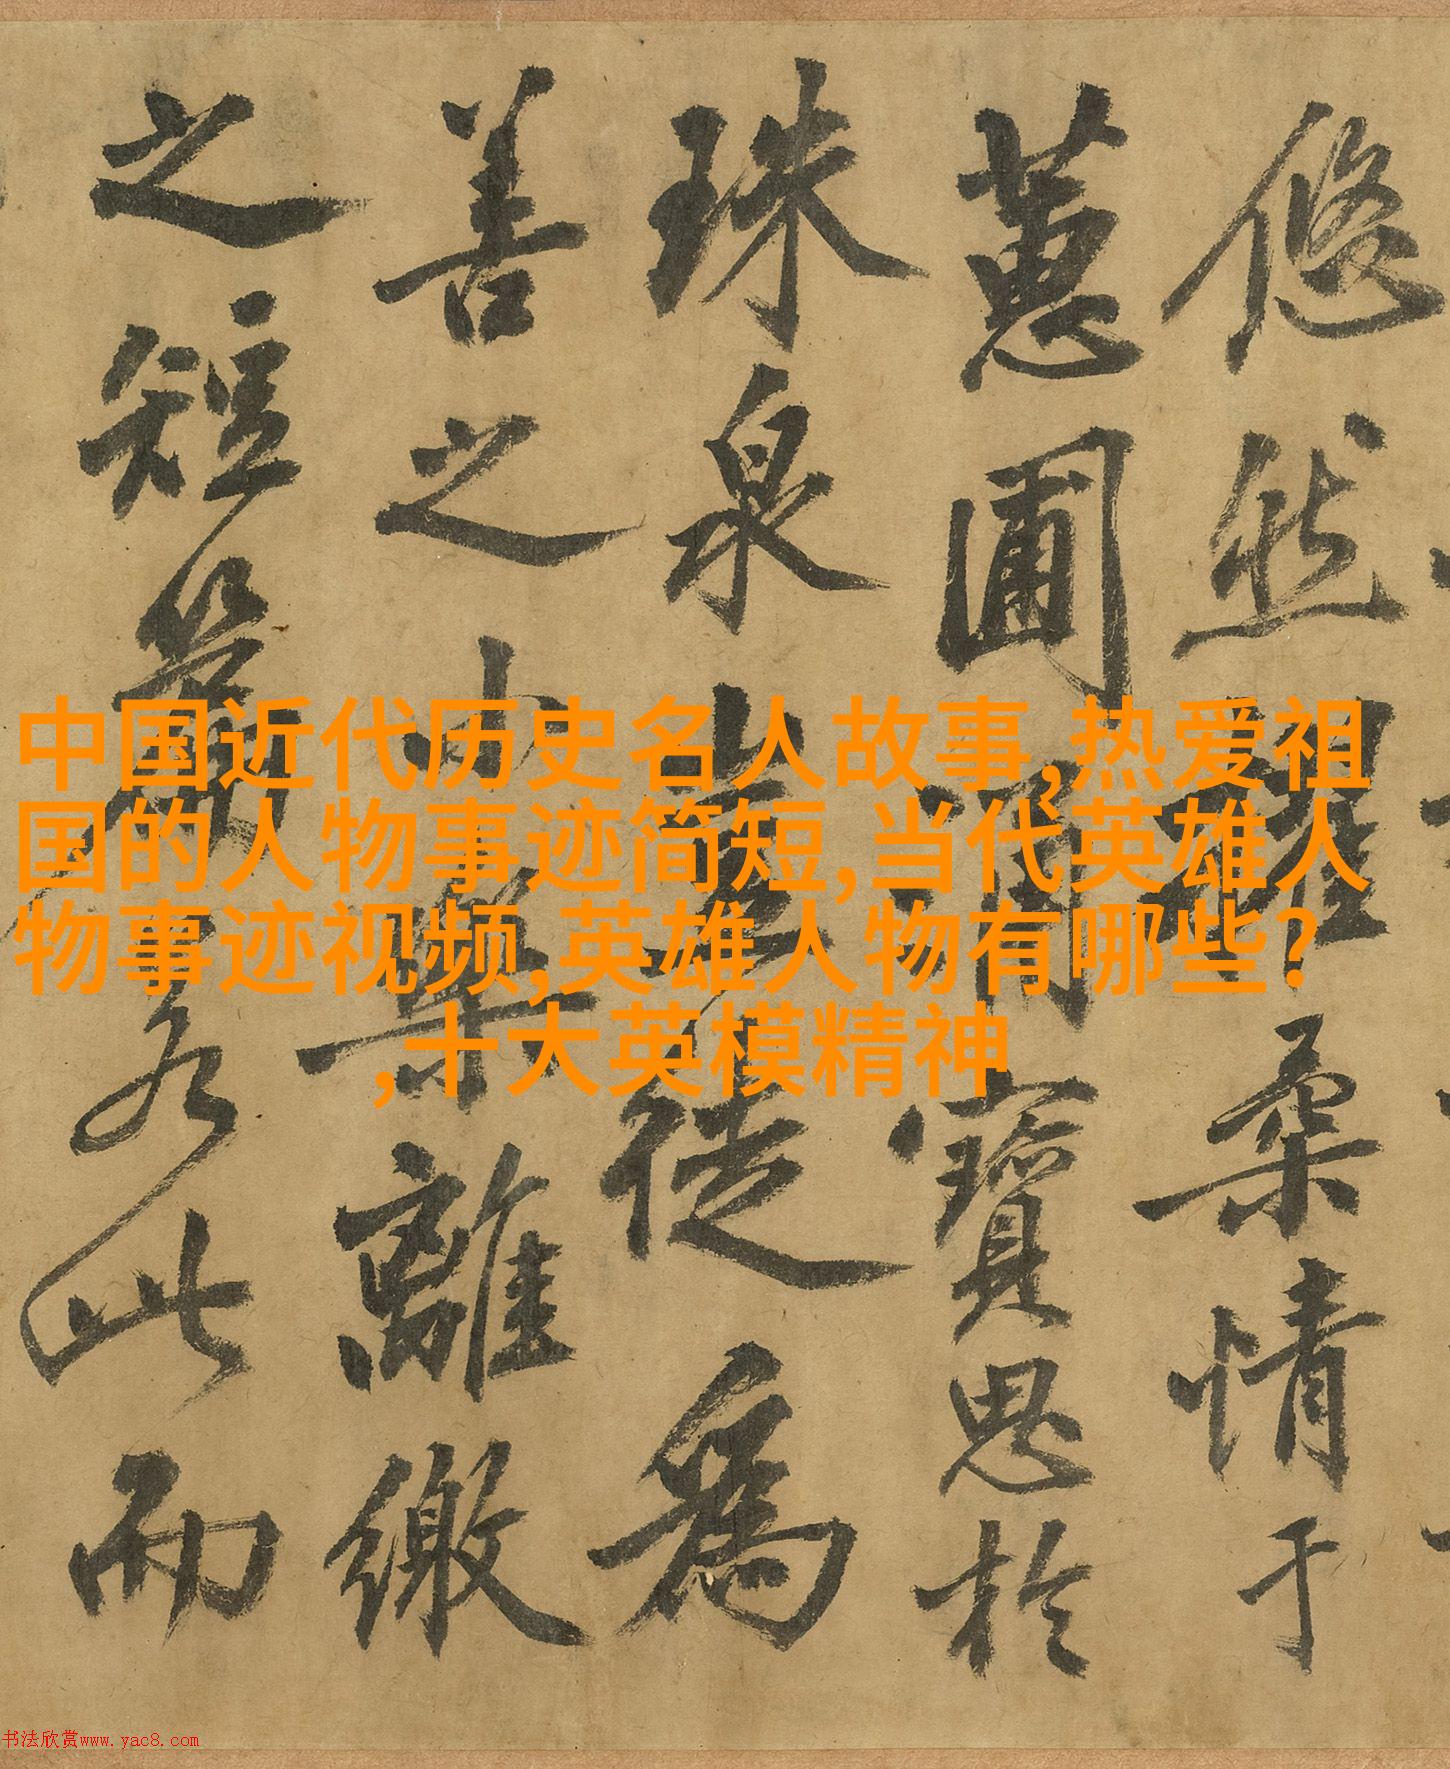 悠然柔情于
蕙圃寶思於
珠泉豈徒爲
善之離繳
之短若此而
中国近代历史名人故事,热爱祖
国的人物事迹简短,当代英雄人
物事迹视频,英雄人物有哪些?
,十大英模精神
书法欣赏www.yac8.com